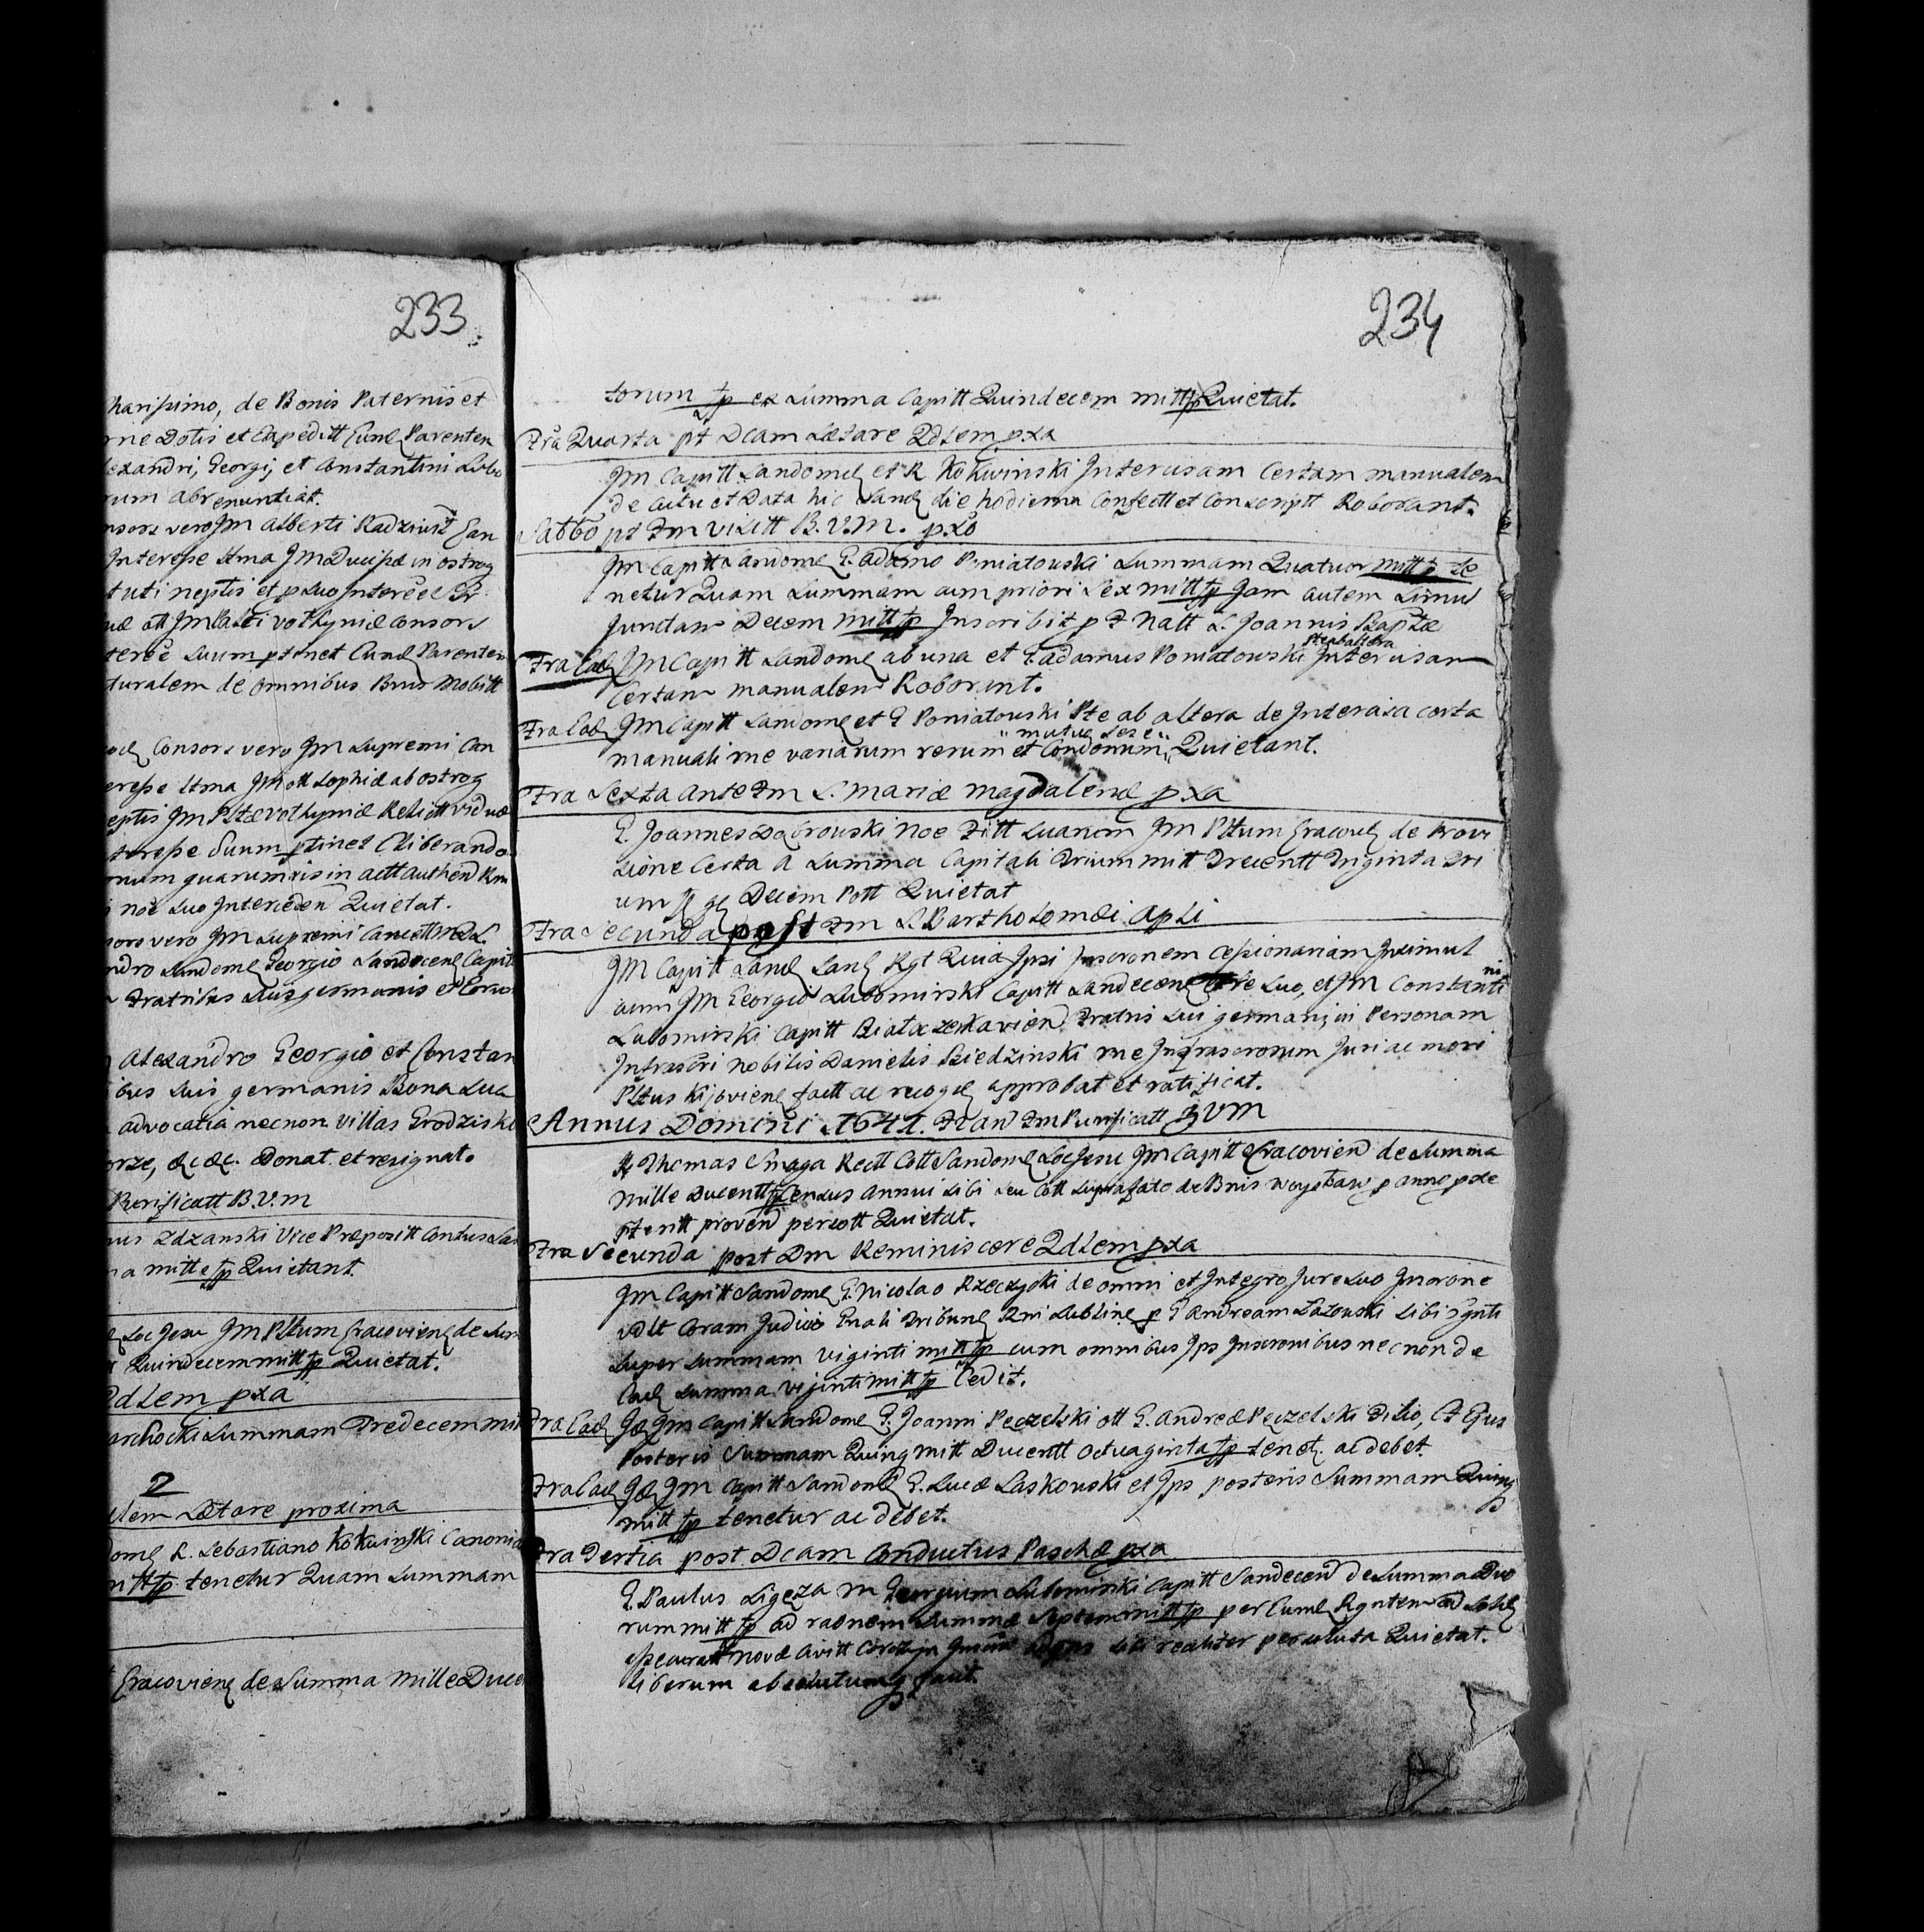 233
harissimo, de Bonis Paternis et
rne Dotis et Expeditt Eund Parenten
lexandri, Georgij et Constantini Lubo
rum abrenuntiat.
nsors vero Jm Alberti Radziwił Can
Interesse Ittma JM Ducissæ in ostrog
tuti neptis et p suo Interee
uæ ott JM Palti volhyniæ Consors
suum ptinet Parenten
turalem de omnibus Bnis Mobitt
Consors vero Jm Supremi Can
eresse Ittma JM ott Sophiæ ab ostrog
eptis Jm Pltæ volhyniæ Relictt viduæ
teresse suum ptinet Cliberando
num quarumvis in actt authend
noe suo Quietat.
sors vero JM Supremi Cancett M D L.
ndro Sandome Georgio Sandecen Capit
Fratribus suis germanis
Alexandro Georgio et Constan
ibus suis germanis Bona sua
advocatia necnon villas Grodzisko
orze, &c &c. Donat et resignat.
Purificatt B. V. m
nus Zdzanski Vice Præpositt Contus San
a mitt fp Quietant.
Soc Jesu JM Pltum Cracovien de Sum
Quindecem mitt fp Quietat.
2dlem pxa
archocki Summam Tredecem mit
2
dlem Lætare proxima
dome R. Sebastiano Kokwinski Canonic
mitt fp tenetur Quam Summam
Cracovien de Summa Mille Ducen
234
torum fp ex Summa Capitt Quindecem mitt fp Quietat.
Fra Quarta pt Dcam Lætare 2dlem pxa
Jm Capitt Sandome et R Kokwinski Intercisam Certam manualem
de actu et Data hic Sand die hodierna Confectt et Conscriptt Roborant.
Sabbo pt Fm Visitt B. V. M. pxo
Jm Capitt Sandome G. Adamo Poniatowski Summam Quatuor mitt fp te
netur Quam Summam cum priori Sex mitt fp Jam autem Simul
Junctam Decem mitt fp Inscribit p F Natt S. Joannis Baptæ
Fra Ead JM Capitt Sandome ab una et G Adamus Poniatowski Pte ab altera Intercisam
Certam manualem Roborant.
Fra Ead JM Capitt Sandome et G Poniatowski Pte ab altera de Intercisa certa
manuali rne variarum rerum et Condonum mutue sese Quietant.
Fra Sexta ante Fm S. Mariæ Magdalenæ pxa
G. Joannes Dąbrowski noe Fitt suarum JM Pltum Cracovien de Provi
sione Certa a Summa Capitali Trium mitt Trecentt Triginta Tri
um fp gr Decem Pott Quietat
Fra Secunda post Fm S. Bartholomæi Apli
JM Capitt Sand Rgt Quia Ipsi Inscronem Cessionariam Insimul
cum JM Georgio Lubomirski Capitt Sandecen fre suo, et JM Constantini
Lubomirski Capitt Białocerkavien Fratris sui germani, in Personam
Infrascri nobilis Danielis Siedzinski rne Infrascrorum Juri ac mori
Pltus Kijovien factt ac recog approbat et ratificat.
Annus Domini 1641. Fra Fm Purificatt BVM
R Thomas Smaga Rectt Cott Sandome Soc Jesu JM Capitt Cracovien de Summa
Mille Ducentt fp Census annui sibi seu Cott suprafato de Bnis woysław p anno pxe
pteritt proven percott Quietat.
Fra Secunda post Dm Reminiscere 2dlem pxa
JM Capitt Sandome G. Nicolao Rzeczycki de omni et Integro Jure suo Inscrone
vdlt Coram Judicio Gnali Tribunę Rni Lubline p G Andream Łazowski sibi
super Summam Viginti mitt fp cum omnibus Ips Inscronibus necnon de
Ead Summa viginti mitt fp Cedit.
Fra Ead Id JM Capitt Sandome G. Joanni Peczelski ott G. Andreæ Peczelski Filio, Et Ejus
Posteris Summam Quinq mitt Ducentt octuaginta fp tenet ac debet.
Fra Ead Id JM Capitt Sandome G. Lucæ Laskowski et Ips posteris Summam Quinq
mitt fp tenetur ac debet.
Fra Tertia post Dcam Conductus Paschæ pxa
G. Paulus Ligęza m Georgium Lubomirski Capitt Sandecen de Summa Duo
rum mitt fp ad raonem Summæ Septem mitt fp per Eund
novæ Civitt sibi realiter persoluta Quietat.
liberum absolutumq facit.